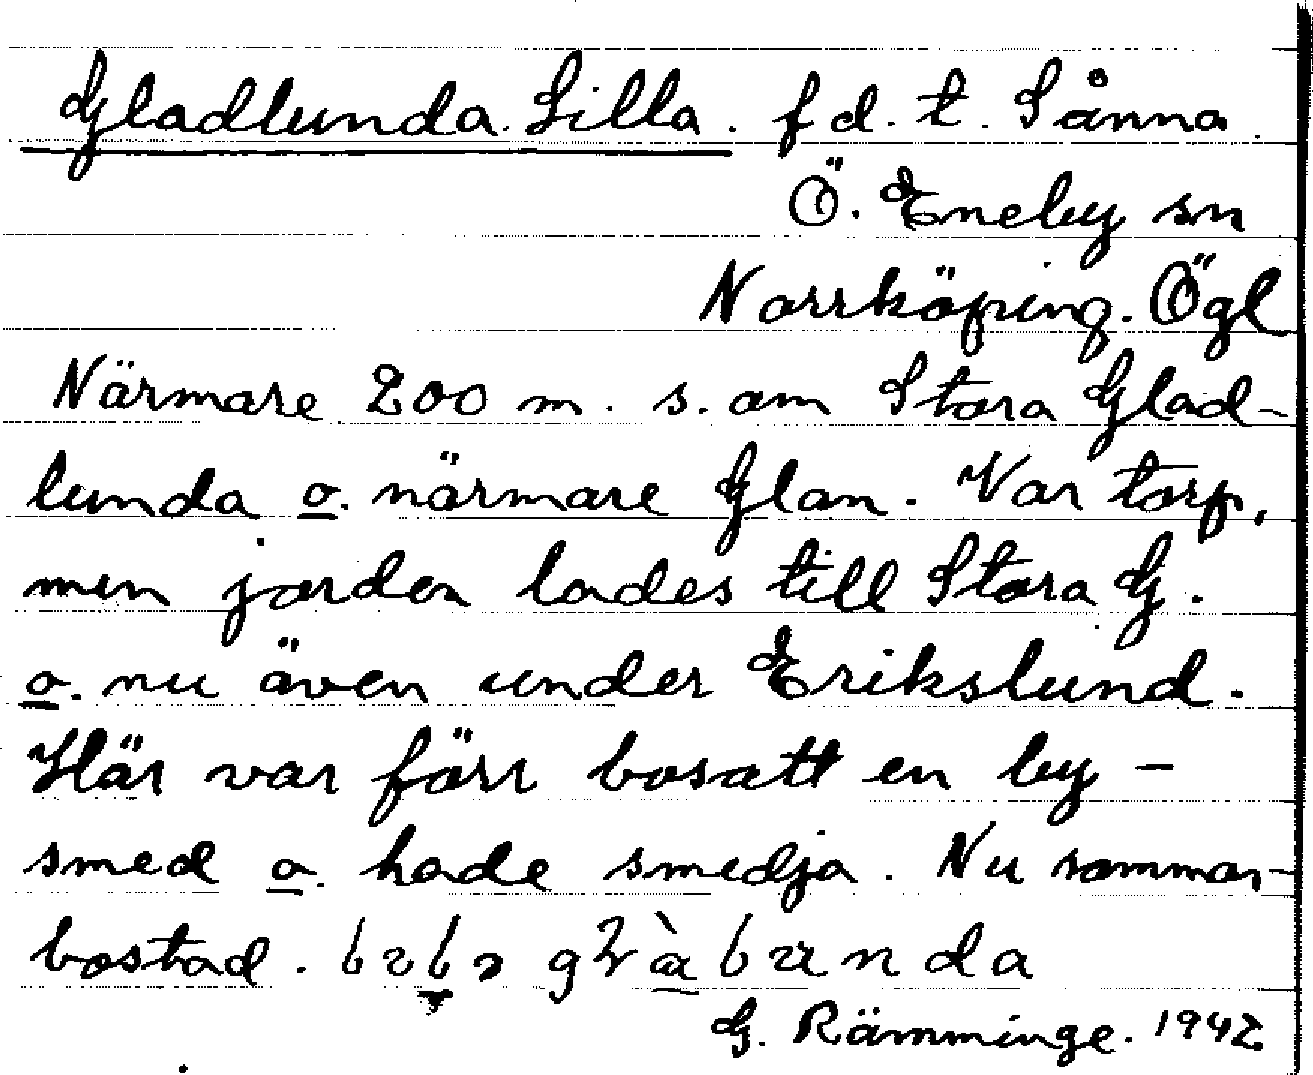 Gladlunda. Lilla. f d. t. Sånna.
Ö. Eneby sn
Norrköping. Ögl
Närmare 200 m. s. om Stora Glad-
lunda o. närmare Glan. Var torp,
men jorden lades till Stora G.
o. nu även under Erikslund.
Här var förr bosatt en by-
smed o. hade smedja. Nu sommar-
bostad.
G. Rämminge. 1942